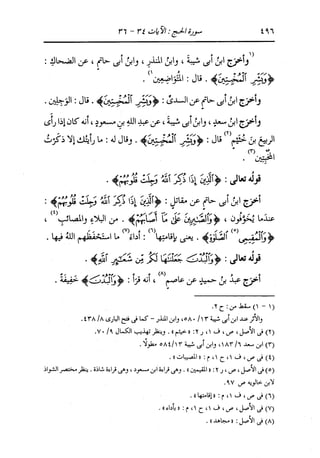 ٤٩٦ سورة الحج : الآيات ٣٤ - ٣٦
(١) وأخرج ابنُ أبى شيبةَ ، وابنُ المنذرِ ، وابنُ أبى حاتمٍ ، عن الضحاكِ :
﴿وَبَشِّرِ ٱلْمُخْبِتِينَ﴾ . قال : المُتَواضِعِين (١) .
وأخرَج ابنُ أبى حاتمٍ عن السدىِّ : ﴿وَبَشِّرِ ٱلْمُخْبِتِينَ﴾ . قال : الوَجِلين .
وأخرَج ابنُ سعدٍ ، وابنُ أبى شيبةَ ، عن عبدِ اللهِ بنِ مسعودٍ ، أنه كان إذا رأى
الربيعَ بنَ خُثَيْمٍ (٢) قال : ﴿وَبَشِّرِ ٱلْمُخْبِتِينَ﴾ . وقال له : ما رأيتُك إلا ذكَرتُ
المُخْبِتِين (٣) .
قولُه تعالى : ﴿ٱلَّذِينَ إِذَا ذُكِرَ ٱللَّهُ وَجِلَتْ قُلُوبُهُمْ﴾ .
أخرَج ابنُ أبى حاتمٍ عن مقاتلٍ : ﴿ٱلَّذِينَ إِذَا ذُكِرَ ٱللَّهُ وَجِلَتْ قُلُوبُهُمْ﴾ :
عندَما يُخَوَّفون ، ﴿وَٱلصَّـٰبِرِينَ عَلَىٰ مَآ أَصَابَهُمْ﴾ . من البلاءِ والمصائبِ (٤) ،
﴿وَٱلْمُقِيمِى (٥) ٱلصَّلَوٰةِ﴾ . يعنى بإقامتِها (٦) : أداءُ (٧) ما استحفَظهم اللهُ فيها .
قولُه تعالى : ﴿وَٱلْبُدْنَ جَعَلْنَـٰهَا لَكُم مِّن شَعَـٰٓئِرِ ٱللَّهِ﴾ .
أخرَج عبدُ بنُ حميدٍ عن عاصمٍ (٨) ، أنه قرَأ : ﴿وَٱلْبُدْنَ﴾ خفيفةً .
(١ - ١) سقط من : ح ٢.
والأثر عند ابن أبى شيبة ١٣/ ٥٨٠، وابن المنذر - كما فى فتح البارى ٤٣٨/٨.
(٢) فى الأصل ، ص ، ف ١، ر ٢: « خيثم » . وينظر تهذيب الكمال ٧٠/٩.
(٣) ابن سعد ١٨٣/٦، وابن أبى شيبة ٥٨٤/١٣ مطولًا.
(٤) فى ص ، ف ١، ح ١، م : « المصيبات » .
(٥) فى الأصل ، ص ، ر ٢: « المقيمين » . وهى قراءة ابن مسعود ، وهى قراءة شاذة . ينظر مختصر الشواذ
لابن خالويه ص ٩٧.
(٦) فى ص ، ف ١، م : « إقامتها » .
(٧) فى الأصل ، ص ، ف ١، ح ١، م : « بأداء » .
(٨) فى الأصل ، ص : « مجاهد » .